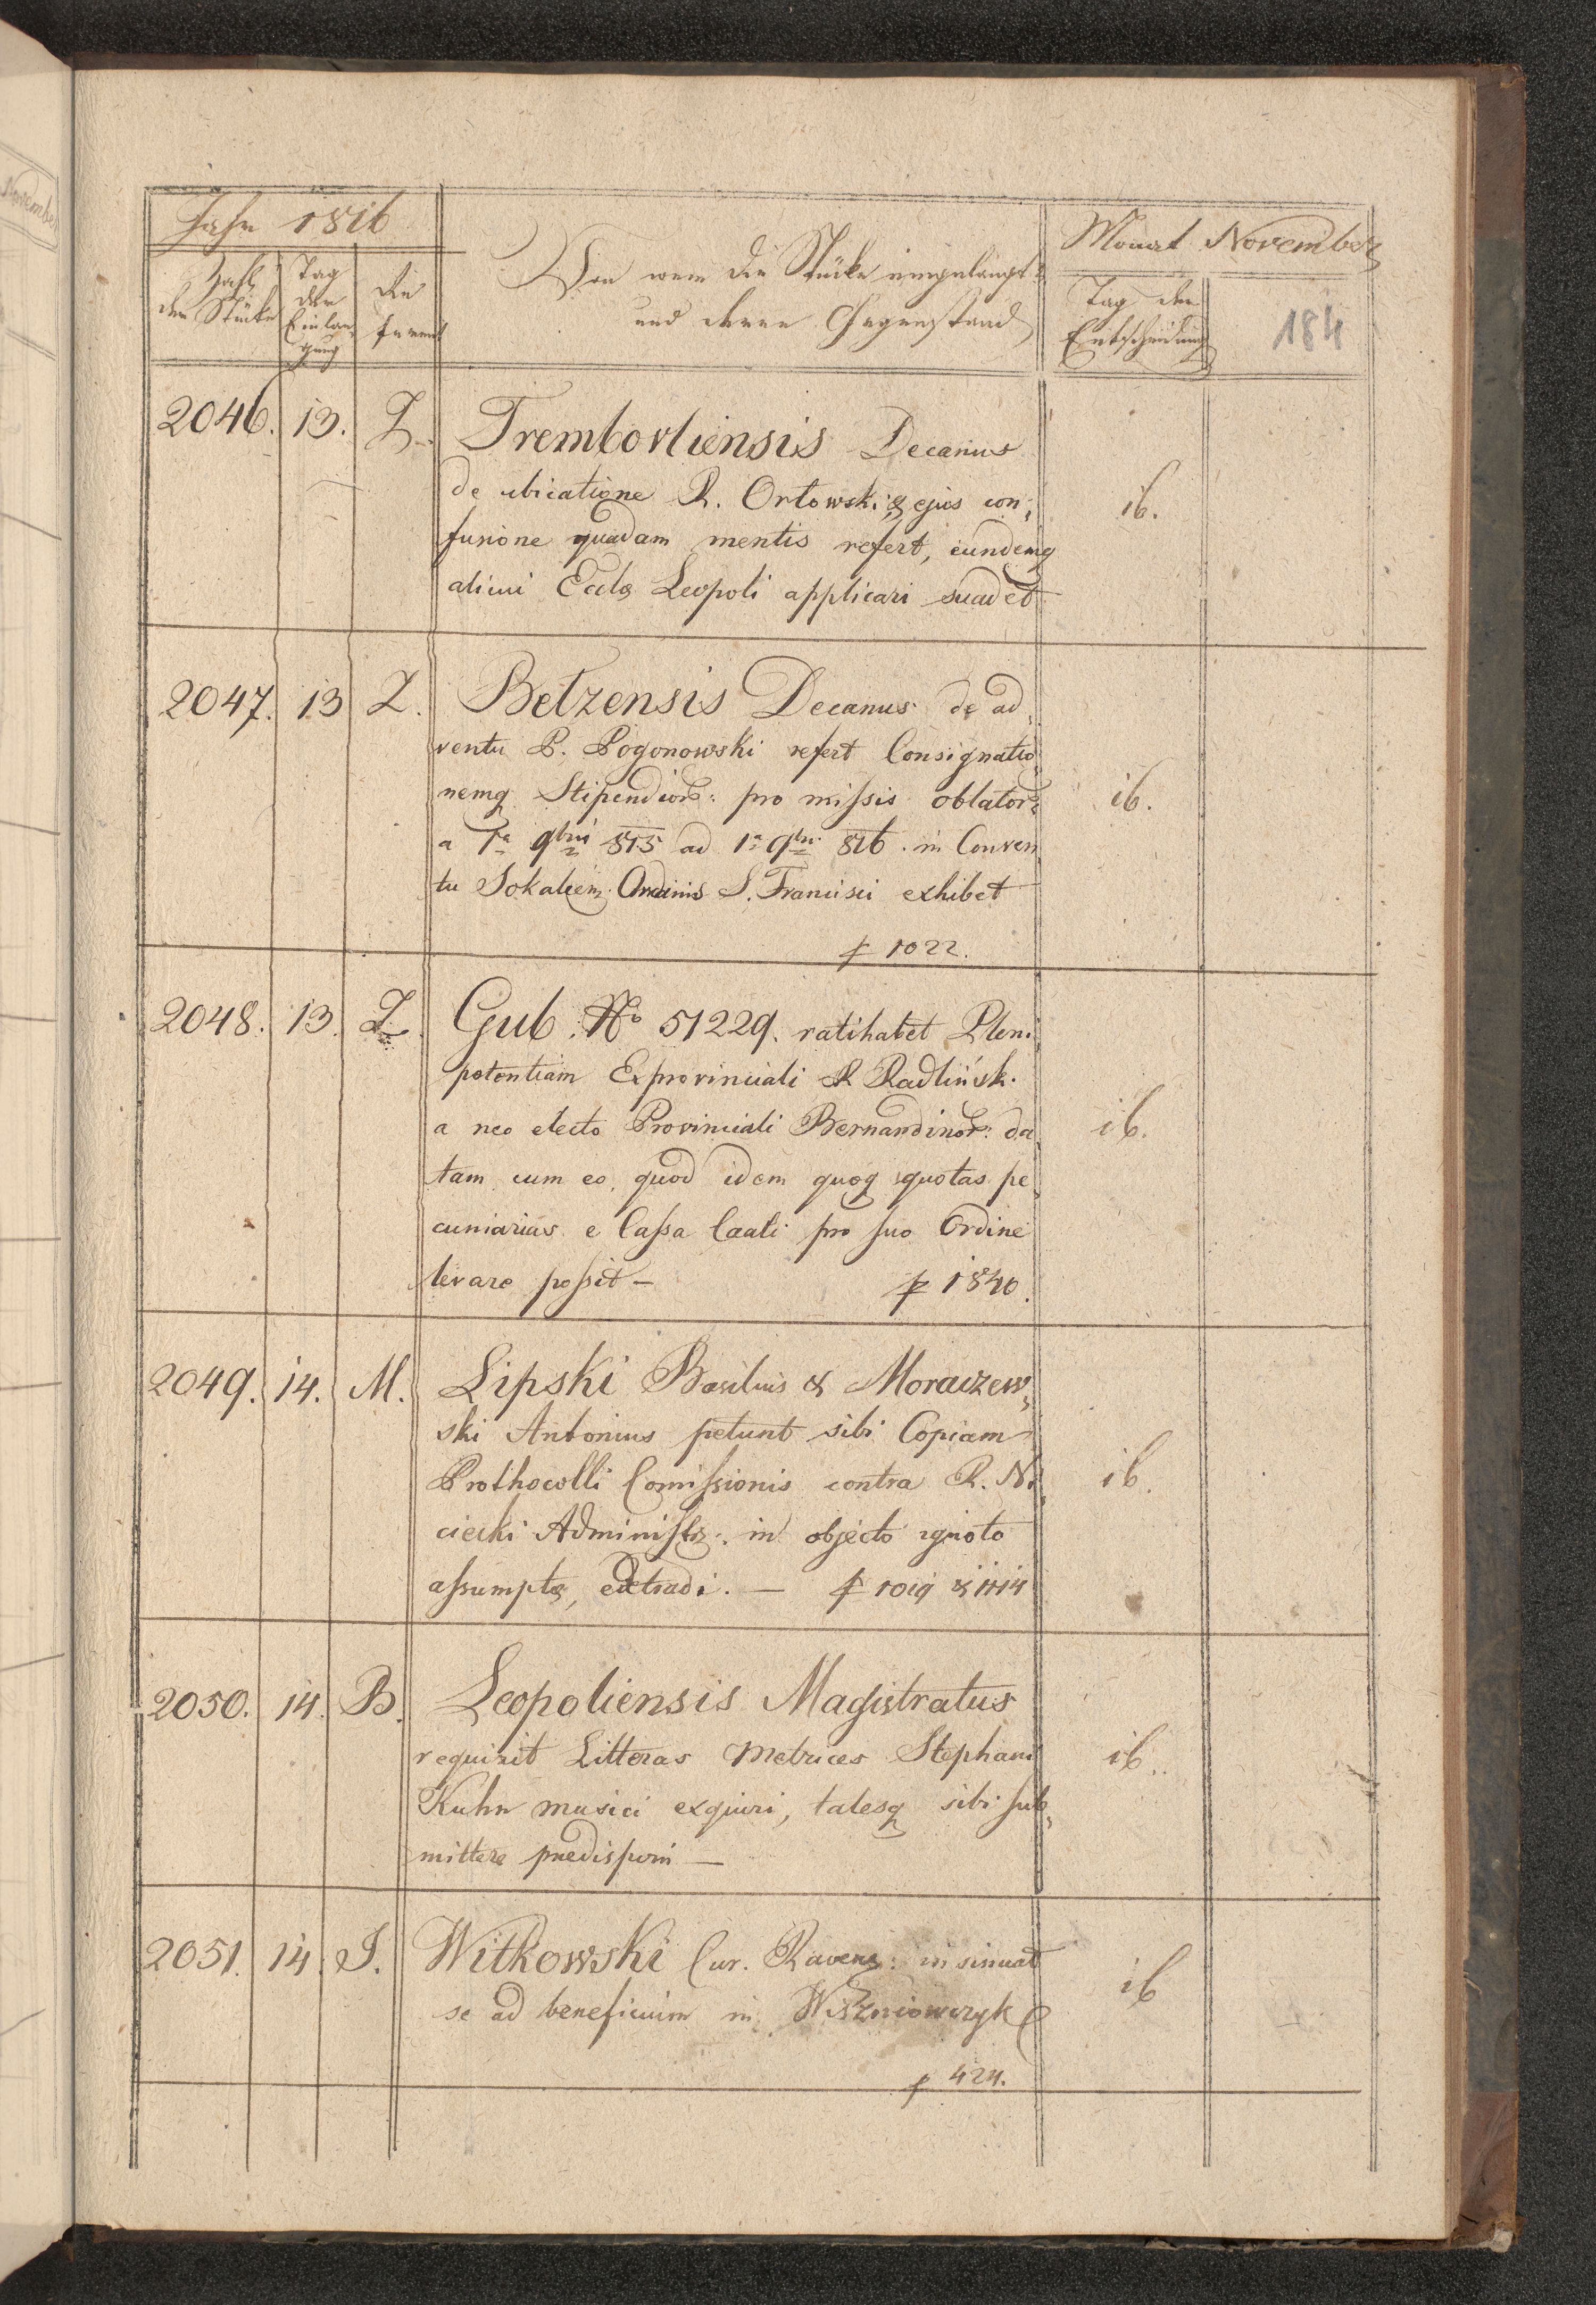 Jahr 1816
Zahl der Stücke
Tag der Einlangung
Referent
Von wem die Stücke eingelangt
und deren Gegenstand
Monat November
Tag der Entscheidung
184
2046. 13. Z. Trembovliensis Decanus
de ubicatione R. Orłowski & ejus con,
fusione quadam mentis refert, eundemq
alicui Eccla Leopoli applicari suadet
ib.
2047. 13 Z. Betzensis Decanus de ad,
ventu P. Pogonowski refert Consignatio,
nemq Stipendior: pro missis oblator:
a 1a 9bris 815 ad 1a 9bris 816. in Conven
tu Sokaliens: Ordinis S. Francisci exhibet
ib.
f 1022.
2048. 13. Z. Gub: No 51229. ratihabet Pleni,
potentiam Exprovinciali R Radlińsk.
a neo electo Provinciali Bernardinor: da,
tam cum eo, quod idem quoq quotas pe,
cuniarias e Cassa Caali pro suo Ordine
levare possit — f 1840.
ib.
2049. 14. M. Lipski Basilius & Moraczew,
ski Antonius petunt sibi Copiam
Prothocolli Comissionis contra R. Ni,
ciecki Administr: in objecto ignoto
assumpta, extradi. — f 1019 & 1114
ib.
2050. 14. B. Leopoliensis Magistratus
requirit Litteras Metrices Stephani
Kuhn musici exquiri, talesq sibi sub,
mittere praedisponi —
ib.
2051. 14. J. Witkowski Cur. Ravens: insinuat
se ad beneficium in Wiszniowczyk
ib
f 424.
November